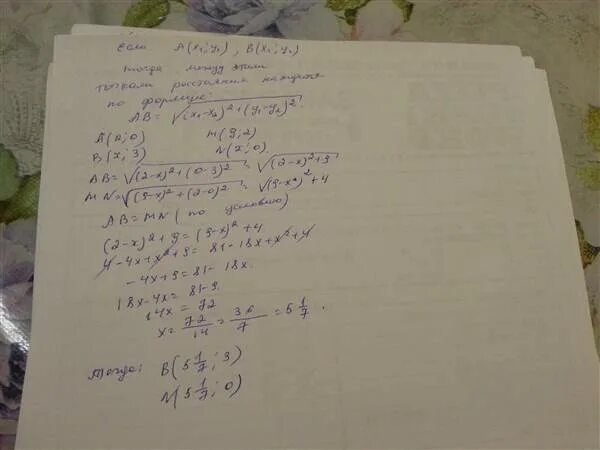 Если A(x₁; y₁), B(x₂; y₂)
тогда между этими
точками расстояние находится
по формуле:
AB = √(x₁-x₂)²+(y₁-y₂)²
A(2; 0) M(9; 2)
B(x; 3) N(x; 0)
AB = √(2-x)²+(0-3)² = √(2-x)²+9
MN = √(9-x)²+(2-0)² = √(9-x)²+4
AB = MN (по условию)
(2-x)²+9 = (9-x)²+4
4-4x+x²+9 = 81-18x+x²+4
-4x+9 = 81-18x
18x-4x = 81-9
14x = 72
x = 72/14 = 36/7 = 5 1/7.
Тогда: B(5 1/7; 3)
N(5 1/7; 0)